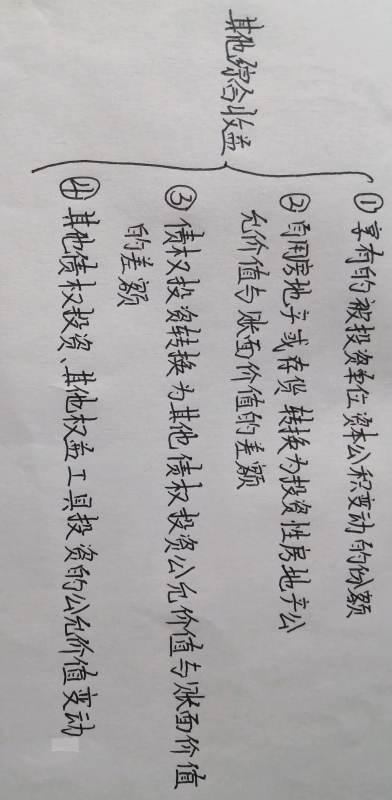 其他综合收益
①享有的被投资单位资本公积变动的份额
②自用房地产或存货转换为投资性房地产公
允价值与账面价值的差额
③债权投资转换为其他债权投资公允价值与账面价值
的差额
④其他债权投资、其他权益工具投资的公允价值变动